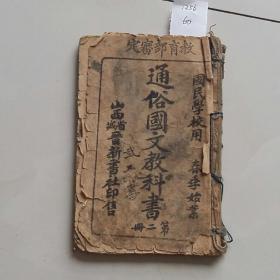 定審部育教
國民學校用 春季始業
通俗國文教科書
第二冊
山西省城晉新書社印售
1256
60